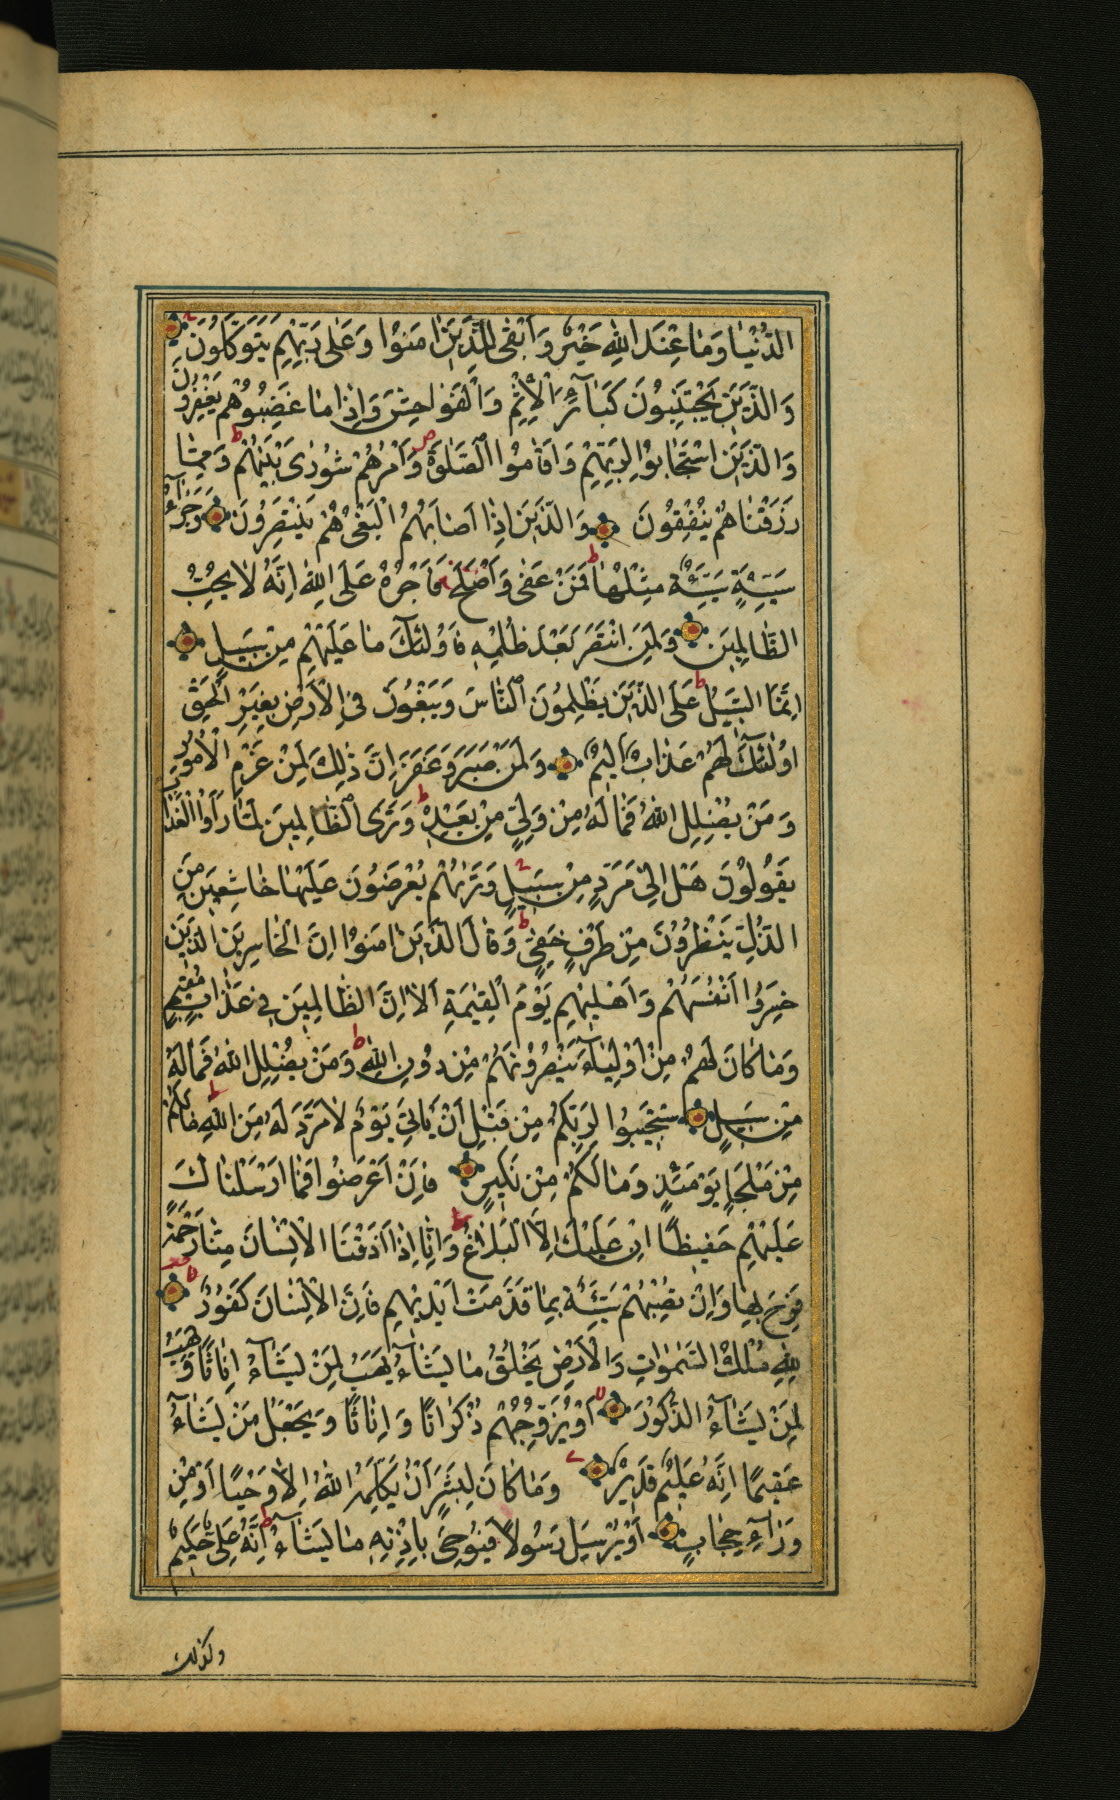 الدُّنْيَا وَمَا عِنْدَ اللّٰهِ خَيْرٌ وَأَبْقٰى لِلَّذِينَ اٰمَنُوا وَعَلٰى رَبِّهِمْ يَتَوَكَّلُونَ
وَالَّذِينَ يَجْتَنِبُونَ كَبَآئِرَ الْاِثْمِ وَالْفَوَاحِشَ وَاِذَا مَا غَضِبُوا هُمْ يَغْفِرُونَ
وَالَّذِينَ اسْتَجَابُوا لِرَبِّهِمْ وَاَقَامُوا الصَّلٰوةَ وَاَمْرُهُمْ شُورٰى بَيْنَهُمْ وَمِمَّا
رَزَقْنَاهُمْ يُنْفِقُونَ وَالَّذِينَ اِذَا اَصَابَهُمُ الْبَغْىُ هُمْ يَنْتَصِرُونَ وَجَزٰٓؤُ
سَيِّئَةٍ سَيِّئَةٌ مِثْلُهَا فَمَنْ عَفٰى وَاَصْلَحَ فَاَجْرُهُ عَلَى اللّٰهِ اِنَّهُ لَا يُحِبُّ
الظَّالِمِينَ وَلَمَنِ انْتَصَرَ بَعْدَ ظُلْمِهِ فَاُولٰئِكَ مَا عَلَيْهِمْ مِنْ سَبِيلٍ
اِنَّمَا السَّبِيلُ عَلَى الَّذِينَ يَظْلِمُونَ النَّاسَ وَيَبْغُونَ فِي الْاَرْضِ بِغَيْرِ الْحَقِّ
اُولٰئِكَ لَهُمْ عَذَابٌ اَلِيمٌ وَلَمَنْ صَبَرَ وَغَفَرَ اِنَّ ذٰلِكَ لَمِنْ عَزْمِ الْاُمُورِ
وَمَنْ يُضْلِلِ اللّٰهُ فَمَا لَهُ مِنْ وَلِيٍّ مِنْ بَعْدِهِ وَتَرَى الظَّالِمِينَ لَمَّا رَاَوُا الْعَذَابَ
يَقُولُونَ هَلْ اِلٰى مَرَدٍّ مِنْ سَبِيلٍ وَتَرٰيهُمْ يُعْرَضُونَ عَلَيْهَا خَاشِعِينَ مِنَ
الذُّلِّ يَنْظُرُونَ مِنْ طَرْفٍ خَفِيٍّ وَقَالَ الَّذِينَ اٰمَنُوا اِنَّ الْخَاسِرِينَ الَّذِينَ
خَسِرُوا اَنْفُسَهُمْ وَاَهْلِيهِمْ يَوْمَ الْقِيٰمَةِ اَلَا اِنَّ الظَّالِمِينَ فِي عَذَابٍ مُقِيمٍ
وَمَا كَانَ لَهُمْ مِنْ اَوْلِيَآءَ يَنْصُرُونَهُمْ مِنْ دُونِ اللّٰهِ وَمَنْ يُضْلِلِ اللّٰهُ فَمَا لَهُ
مِنْ سَبِيلٍ سْتَجِيبُوا لِرَبِّكُمْ مِنْ قَبْلِ اَنْ يَاْتِيَ يَوْمٌ لَا مَرَدَّ لَهُ مِنَ اللّٰهِ مَا لَكُمْ
مِنْ مَلْجَاٍ يَوْمَئِذٍ وَمَا لَكُمْ مِنْ نَكِيرٍ فَاِنْ اَعْرَضُوا فَمَا اَرْسَلْنَاكَ
عَلَيْهِمْ حَفِيظًا اِنْ عَلَيْكَ اِلَّا الْبَلَاغُ وَاِنَّا اِذَا اَذَقْنَا الْاِنْسَانَ مِنَّا رَحْمَةً
فَرِحَ بِهَا وَاِنْ تُصِبْهُمْ سَيِّئَةٌ بِمَا قَدَّمَتْ اَيْدِيهِمْ فَاِنَّ الْاِنْسَانَ كَفُورٌ
لِلّٰهِ مُلْكُ السَّمٰوَاتِ وَالْاَرْضِ يَخْلُقُ مَا يَشَآءُ يَهَبُ لِمَنْ يَشَآءُ اِنَاثًا وَيَهَبُ
لِمَنْ يَشَآءُ الذُّكُورَ اَوْ يُزَوِّجُهُمْ ذُكْرَانًا وَاِنَاثًا وَيَجْعَلُ مَنْ يَشَآءُ
عَقِيمًا اِنَّهُ عَلِيمٌ قَدِيرٌ وَمَا كَانَ لِبَشَرٍ اَنْ يُكَلِّمَهُ اللّٰهُ اِلَّا وَحْيًا اَوْ مِنْ
وَرَآءِ حِجَابٍ اَوْ يُرْسِلَ رَسُولًا فَيُوحِيَ بِاِذْنِهِ مَا يَشَآءُ اِنَّهُ عَلِيٌّ حَكِيمٌ
وكذلك